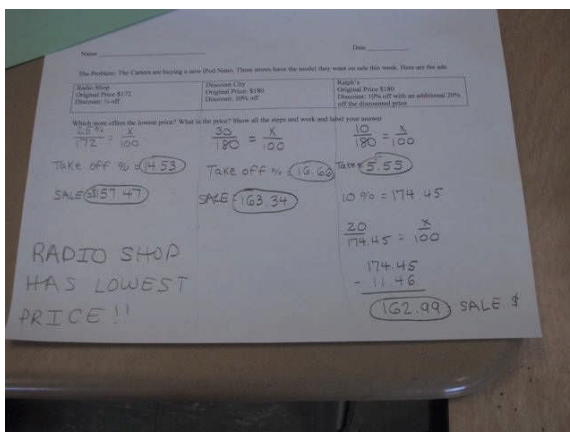 Name
Date
The Problem: The Carters are buying a new iPod Nano. Three stores have the model they want on sale this week. Here are the ads.
Radio Shop
Original Price $172
Discount: ¼ off
Discount City
Original Price: $180
Discount: 30% off
Ralph's
Original Price $180
Discount: 10% off with an additional 20% off the discounted price
Which store offers the lowest price? What is the price? Show all the steps and work and label your answer
25% / 172 = X / 100
Take off % = 14.53
SALE $157.47
RADIO SHOP
HAS LOWEST
PRICE!!
30 / 180 = X / 100
Take off % = 16.66
SALE = 163.34
10 / 180 = X / 100
Take 5.55
10% = 174.45
20 / 174.45 = X / 100
174.45
- 11.46
162.99 SALE $